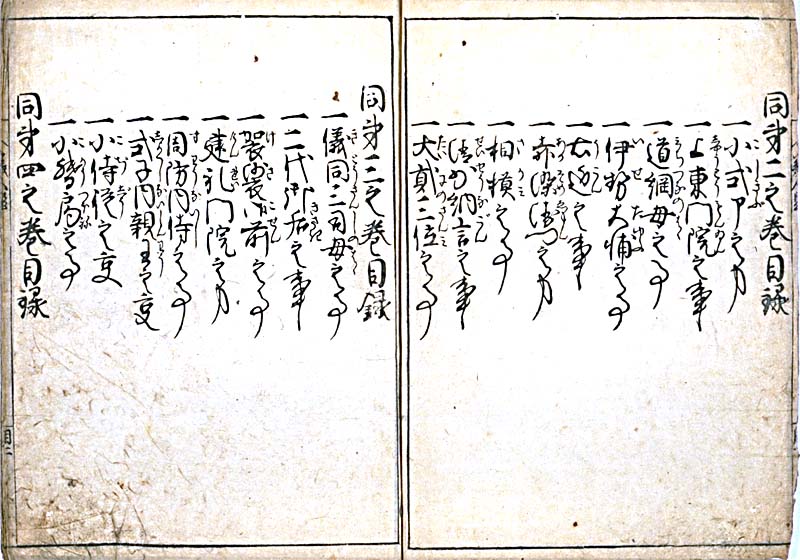 同第二之巻目録
一 小式部之事
一 上東門院之事
一 道綱母之事
一 伊勢大輔之事
一 右近之事
一 赤染衛門之事
一 相模之事
一 清少納言之事
一 大貳三位之事
同第三之巻目録
一 儀同三司母之事
一 二代御后之事
一 袈裟御前之事
一 建礼門院之事
一 周防内侍之事
一 式子内親王之夏
一 小侍従之夏
一 小督局之事
同第四之巻目録